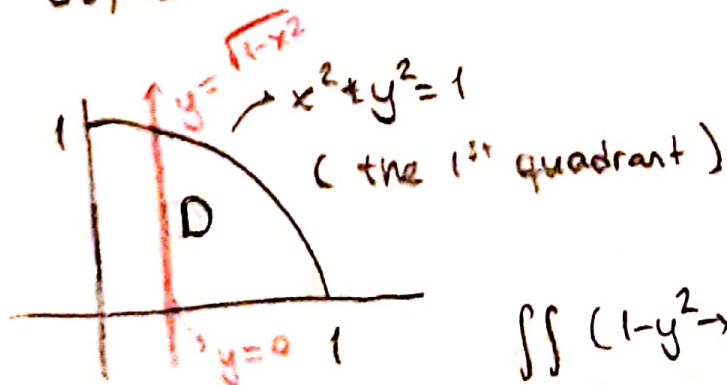 y = √(1-x²)
x² + y² = 1
1
( the 1st quadrant )
D
∬ (1-y²→
y=0
1